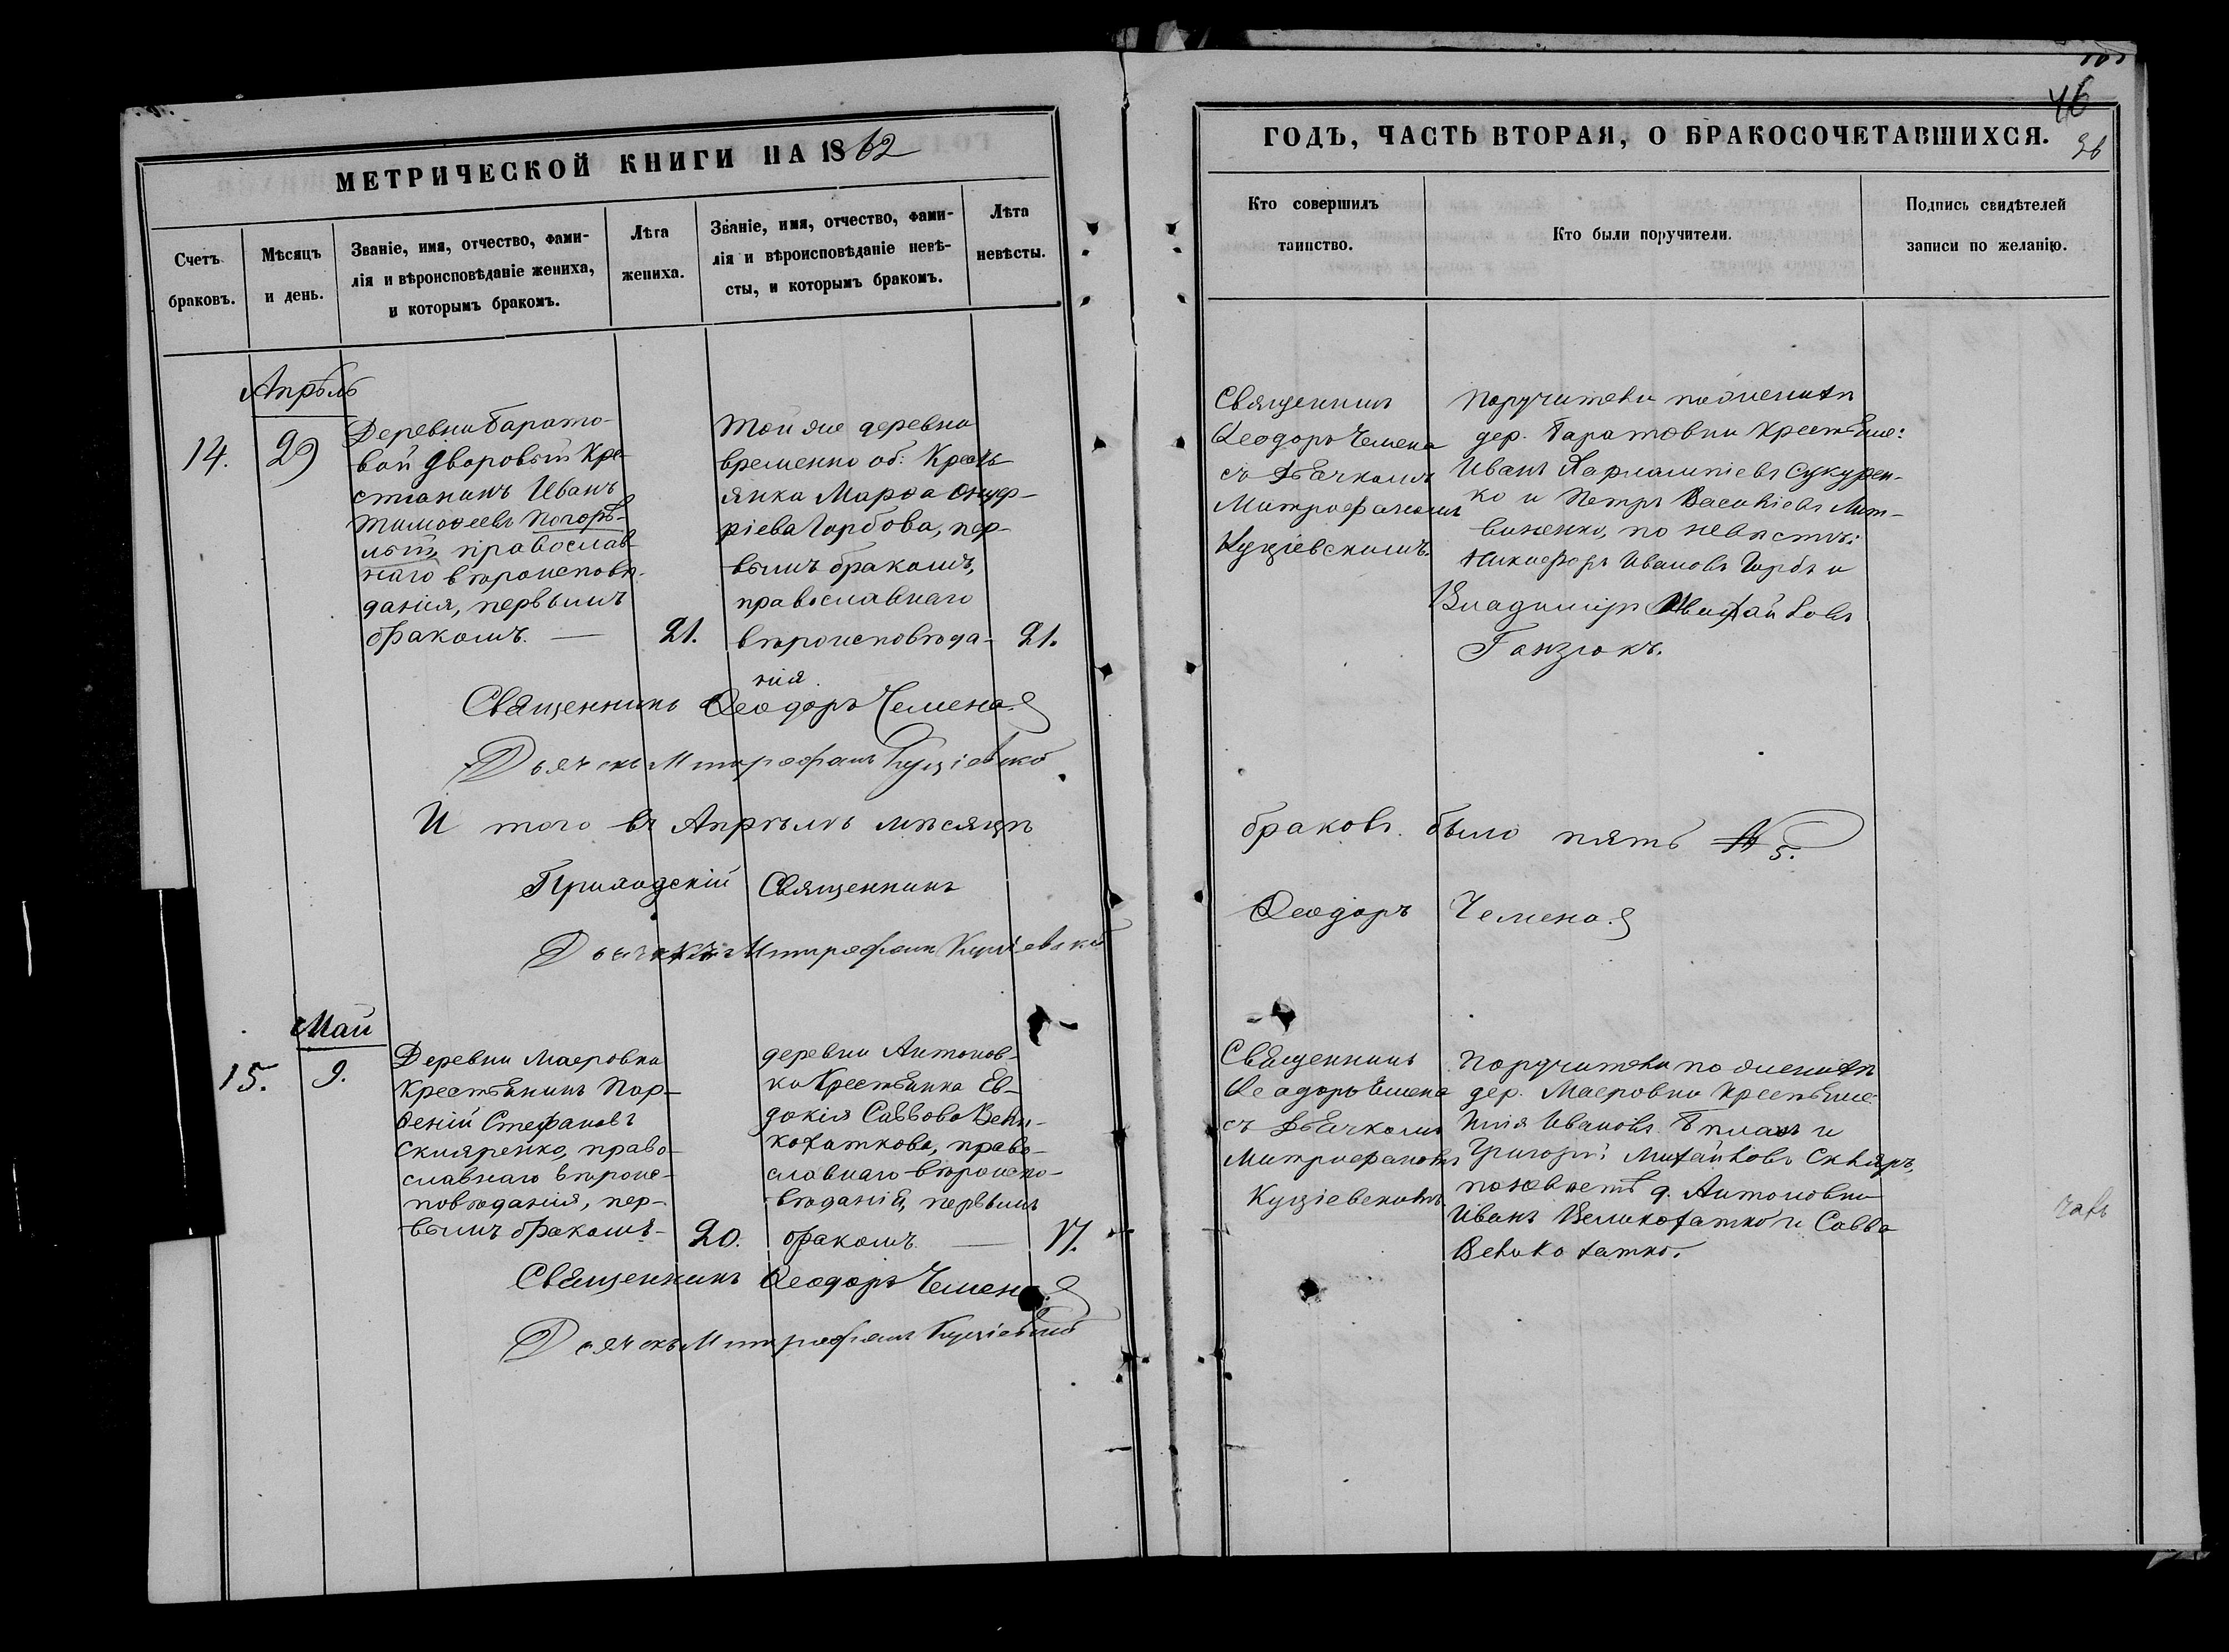 МЕТРИЧЕСКОЙ КНИГИ НА 1862
Счетъ браковъ.
Мѣсяцъ и день.
Званіе, имя, отчество, фами-
лія и вѣроисповѣданіе жениха,
и которымъ бракомъ.
Лѣта
жениха.
Званіе, имя, отчество, фами-
лія и вѣроисповѣданіе невѣ-
сты, и которымъ бракомъ.
Лѣта
невѣсты.
Апрѣль
14.
29
Деревни Барато-
вой дворовый Кре-
стианинъ Иванъ
Тимоѳеевъ Погорѣ-
лый, православ-
наго вѣроисповѣ-
данія, первымъ
бракомъ. —
21.
Той же деревни
временно об: Кресть-
янка Марѳа Онуф-
ріева Горбова, пер-
вымъ бракомъ,
православнаго
вѣроисповѣда-
нія.
21.
Священникъ Ѳеодоръ Чемена
Дьячокъ Митрофанъ Куціевскій
И того въ Апрѣлѣ мѣсяцѣ
Приходскій Священникъ
Дьячокъ Митрофанъ Куціевскій
Май
15.
9.
Деревни Маеровки
Крестьянинъ Пар-
ѳеній Стефановъ
Скляренко, право-
славнаго вѣроис-
повѣданія, пер-
вымъ бракомъ-
20.
деревни Антонов-
ки Крестьянка Ев-
докія Саввова Вели-
кохаткова, право-
славнаго вѣроиспо-
вѣданія, первымъ
бракомъ. —
17.
Священникъ Ѳеодоръ Чемена
Дьячокъ Митрофанъ Куціевскій
46
ГОДЪ, ЧАСТЬ ВТОРАЯ, О БРАКОСОЧЕТАВШИХСЯ.
Кто совершилъ
таинство.
Кто были поручители.
Подпись свидѣтелей
записи по желанію.
Священникъ
Ѳеодоръ Чемена
съ Дьячкомъ
Митрофаномъ
Куціевскимъ.
Поручители по женихѣ
дер. Баратовки Крестьяне:
Иванъ Харлампіевъ Сукурен-
ко и Петръ Васильевъ Лит-
виненко, по невѣстѣ:
Никифоръ Ивановъ Горбъ и
Владимиръ Михайловъ
Ганзюкъ.
браковъ было пять № 5.
Ѳеодоръ Чемена
Священникъ
Ѳеодоръ Чемена
съ Дьячкомъ
Митрофаномъ
Куціевскимъ.
Поручители по женихѣ
дер. Маеровки Крестьяне
Илія Ивановъ и
Григорій Михайловъ Скляръ,
по невѣстѣ д. Антоновки
Иванъ Великохатко и Савва
Великохатко.